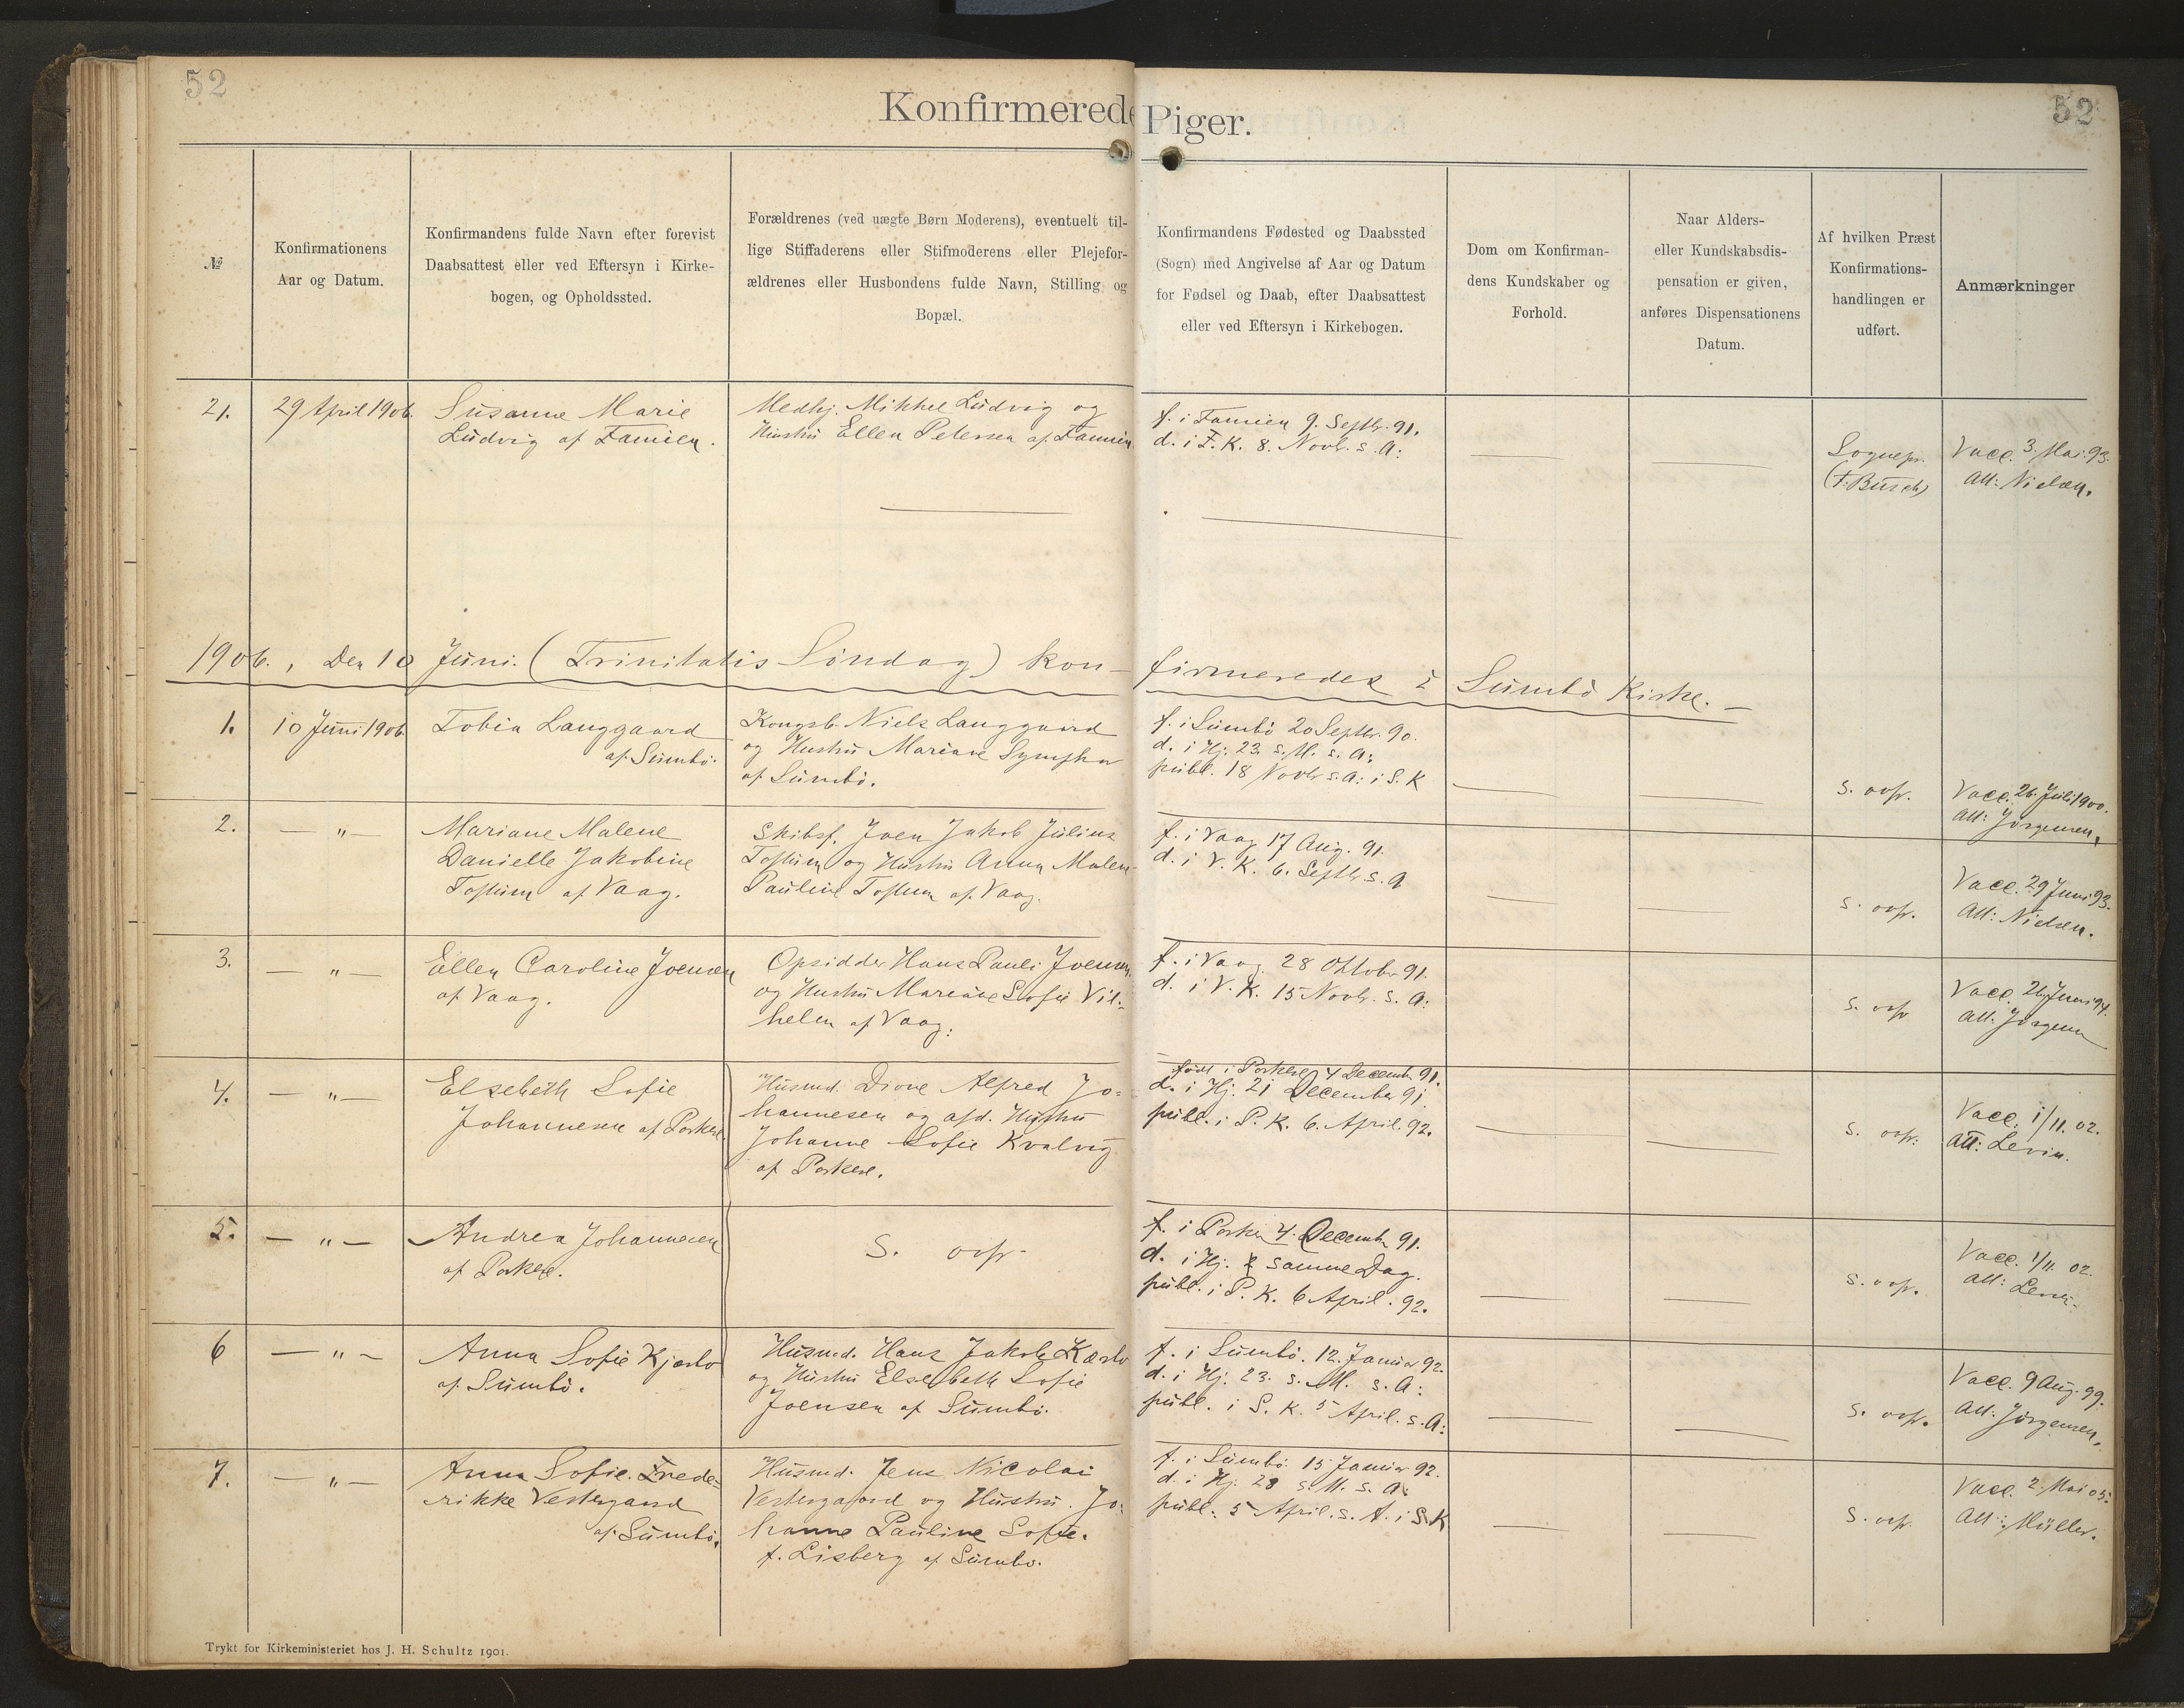 52
52
Konfirmerede Piger.
№
Konfirmationens
Aar og Datum.
Konfirmandens fulde Navn efter forevist
Daabsattest eller ved Eftersyn i Kirke-
bogen, og Opholdssted.
Forældrenes (ved uægte Børn Moderens), eventuelt til-
lige Stiffaderens eller Stifmoderens eller Plejefor-
ældrenes eller Husbondens fulde Navn, Stilling og
Bopæl.
Konfirmandens Fødested og Daabssted
(Sogn) med Angivelse af Aar og Datum
for Fødsel og Daab, efter Daabsattest
eller ved Eftersyn i Kirkebogen.
Dom om Konfirman-
dens Kundskaber og
Forhold.
Naar Alders-
eller Kundskabsdis-
pensation er given,
anføres Dispensationens
Datum.
Af hvilken Præst
Konfirmations-
handlingen er
udført.
Anmærkninger
21.
29 April 1906.
Susanne Marie
Ludvig af Famien.
Medhj. Mikkel Ludvig og
Hustru Ellen Petersen af Famien
f. i Famien 9. Septbr. 91.
d. i F. K. 8. Novb. s. A:
Sognepr.
(F. Busch)
Vacc. 3. Mai 93.
Att: Nielsen.
1906., Den 10 Juni. (Trinitatis Söndag) kon-
firmeredes i Sumbö Kirke. —
1.
10 Juni 1906
Tobia Langgaard
af Sumbö.
Kongsb. Niels Langgaard
og Hustru Mariane Symphor
af Sumbö.
f. i Sumbö 20 Septbr. 90.
d. i Hj. 23. s. M. s. A:
publ. 18 Novb s. A: i S. K
s. ovfr.
Vacc. 26. Juli 1900.
Att: Jörgensen.
2.
— " —
Mariane Malene
Danielle Jakobine
Toftum af Vaag.
Skibsf. Joen Jakob Julius
Toftum og Hustru Anna Malene
Pauline Toftum af Vaag.
f. i Vaag 17 Aug. 91.
d. i V. K. 6. Septbr s. A
s. ovfr.
Vacc. 29 Juni 93.
Att: Nielsen.
3.
— " —
Ellen Caroline Joensen
af Vaag.
Opsidder Hans Pauli Joensen
og Hustru Mariane Sofie Vil-
helm af Vaag:
f. i Vaag 28 Oktober 91.
d. i V. K. 15 Novb. s. A:
s. ovfr
Vacc. 26 Juni 94.
Att: Jörgensen
4.
— " —
Elsebeth Sofie
Johannesen af Porkere
Husmd. Dione Alfred Jo-
hannesen og afd. Hustru
Johanne Sofie Kvalvig
af Porkere.
født i Porkere 4 Decemb 91.
d. i Hj. 21 December 91
publ. i P. K. 6. April. 92.
s. ovfr:
Vacc. 1/11. 02.
Att: Levin.
5.
— " —
Andrea Johannesen
af Porkere.
S. ovfr.
f. i Porkere 4. December 91.
d. i Hj. samme Dag.
publ. i P. K. 6 April. 92.
s. ovfr.
Vacc. 1/11. 02.
Att: Levin.
6
— " —
Anna Sofie Kjærbo
af Sumbö.
Husmd. Hans Jakob Kærbo
og Hustru Elsebeth Sofie
Joensen af Sumbö.
f. i Sumbö. 12. Januar 92.
d. i Hj. 23. s. M. s. A:
publ. i S. K. 5 April. s. A:
s. ovfr.
Vacc. 9 Aug. 99.
Att. Jörgensen.
7.
— " —
Anna Sofie Frede-
rikke Vestergaard
af Sumbö.
Husmd. Jens Nicolai
Vestergaard og Hustru. Jo-
hanne Pauline Sofie.
f. Lisberg af Sumbö.
f. i Sumbö 15 Januar 92.
d. i Hj. 28 s. M. s. A:
publ. 5 April. s. A. i S. K
S. ovfr.
Vacc. 2. Mai 05.
Att: Müller.
Trykt for Kirkeministeriet hos J. H. Schultz 1901.